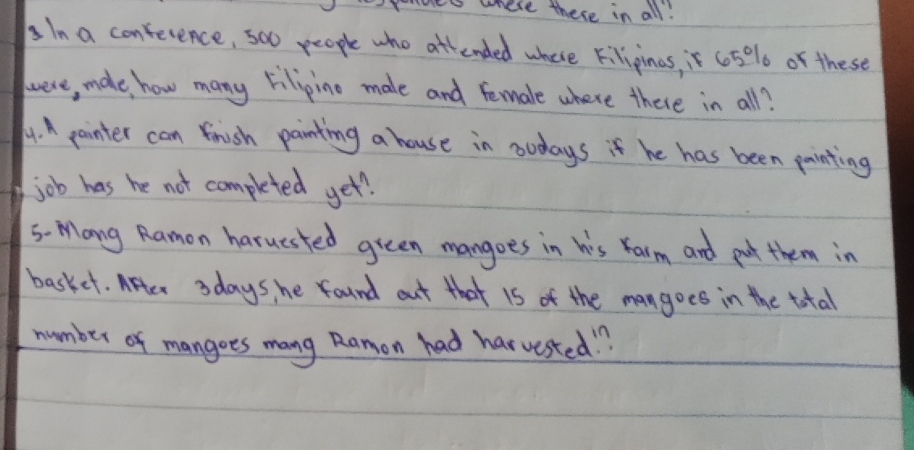 where these in all?
3 In a conference, 500 people who attended where Filipinos, if 65% of these
were, male, how many Filipino male and Female where there in all?
4. A painter can finish painting a house in 30days if he has been painting
job has he not completed yet?
5- Mang Ramon harvested green mangoes in his farm and put them in
basket. After 3 days, he found out that 15 of the mangoes in the total
number of mangoes mang Ramon had harvested!?